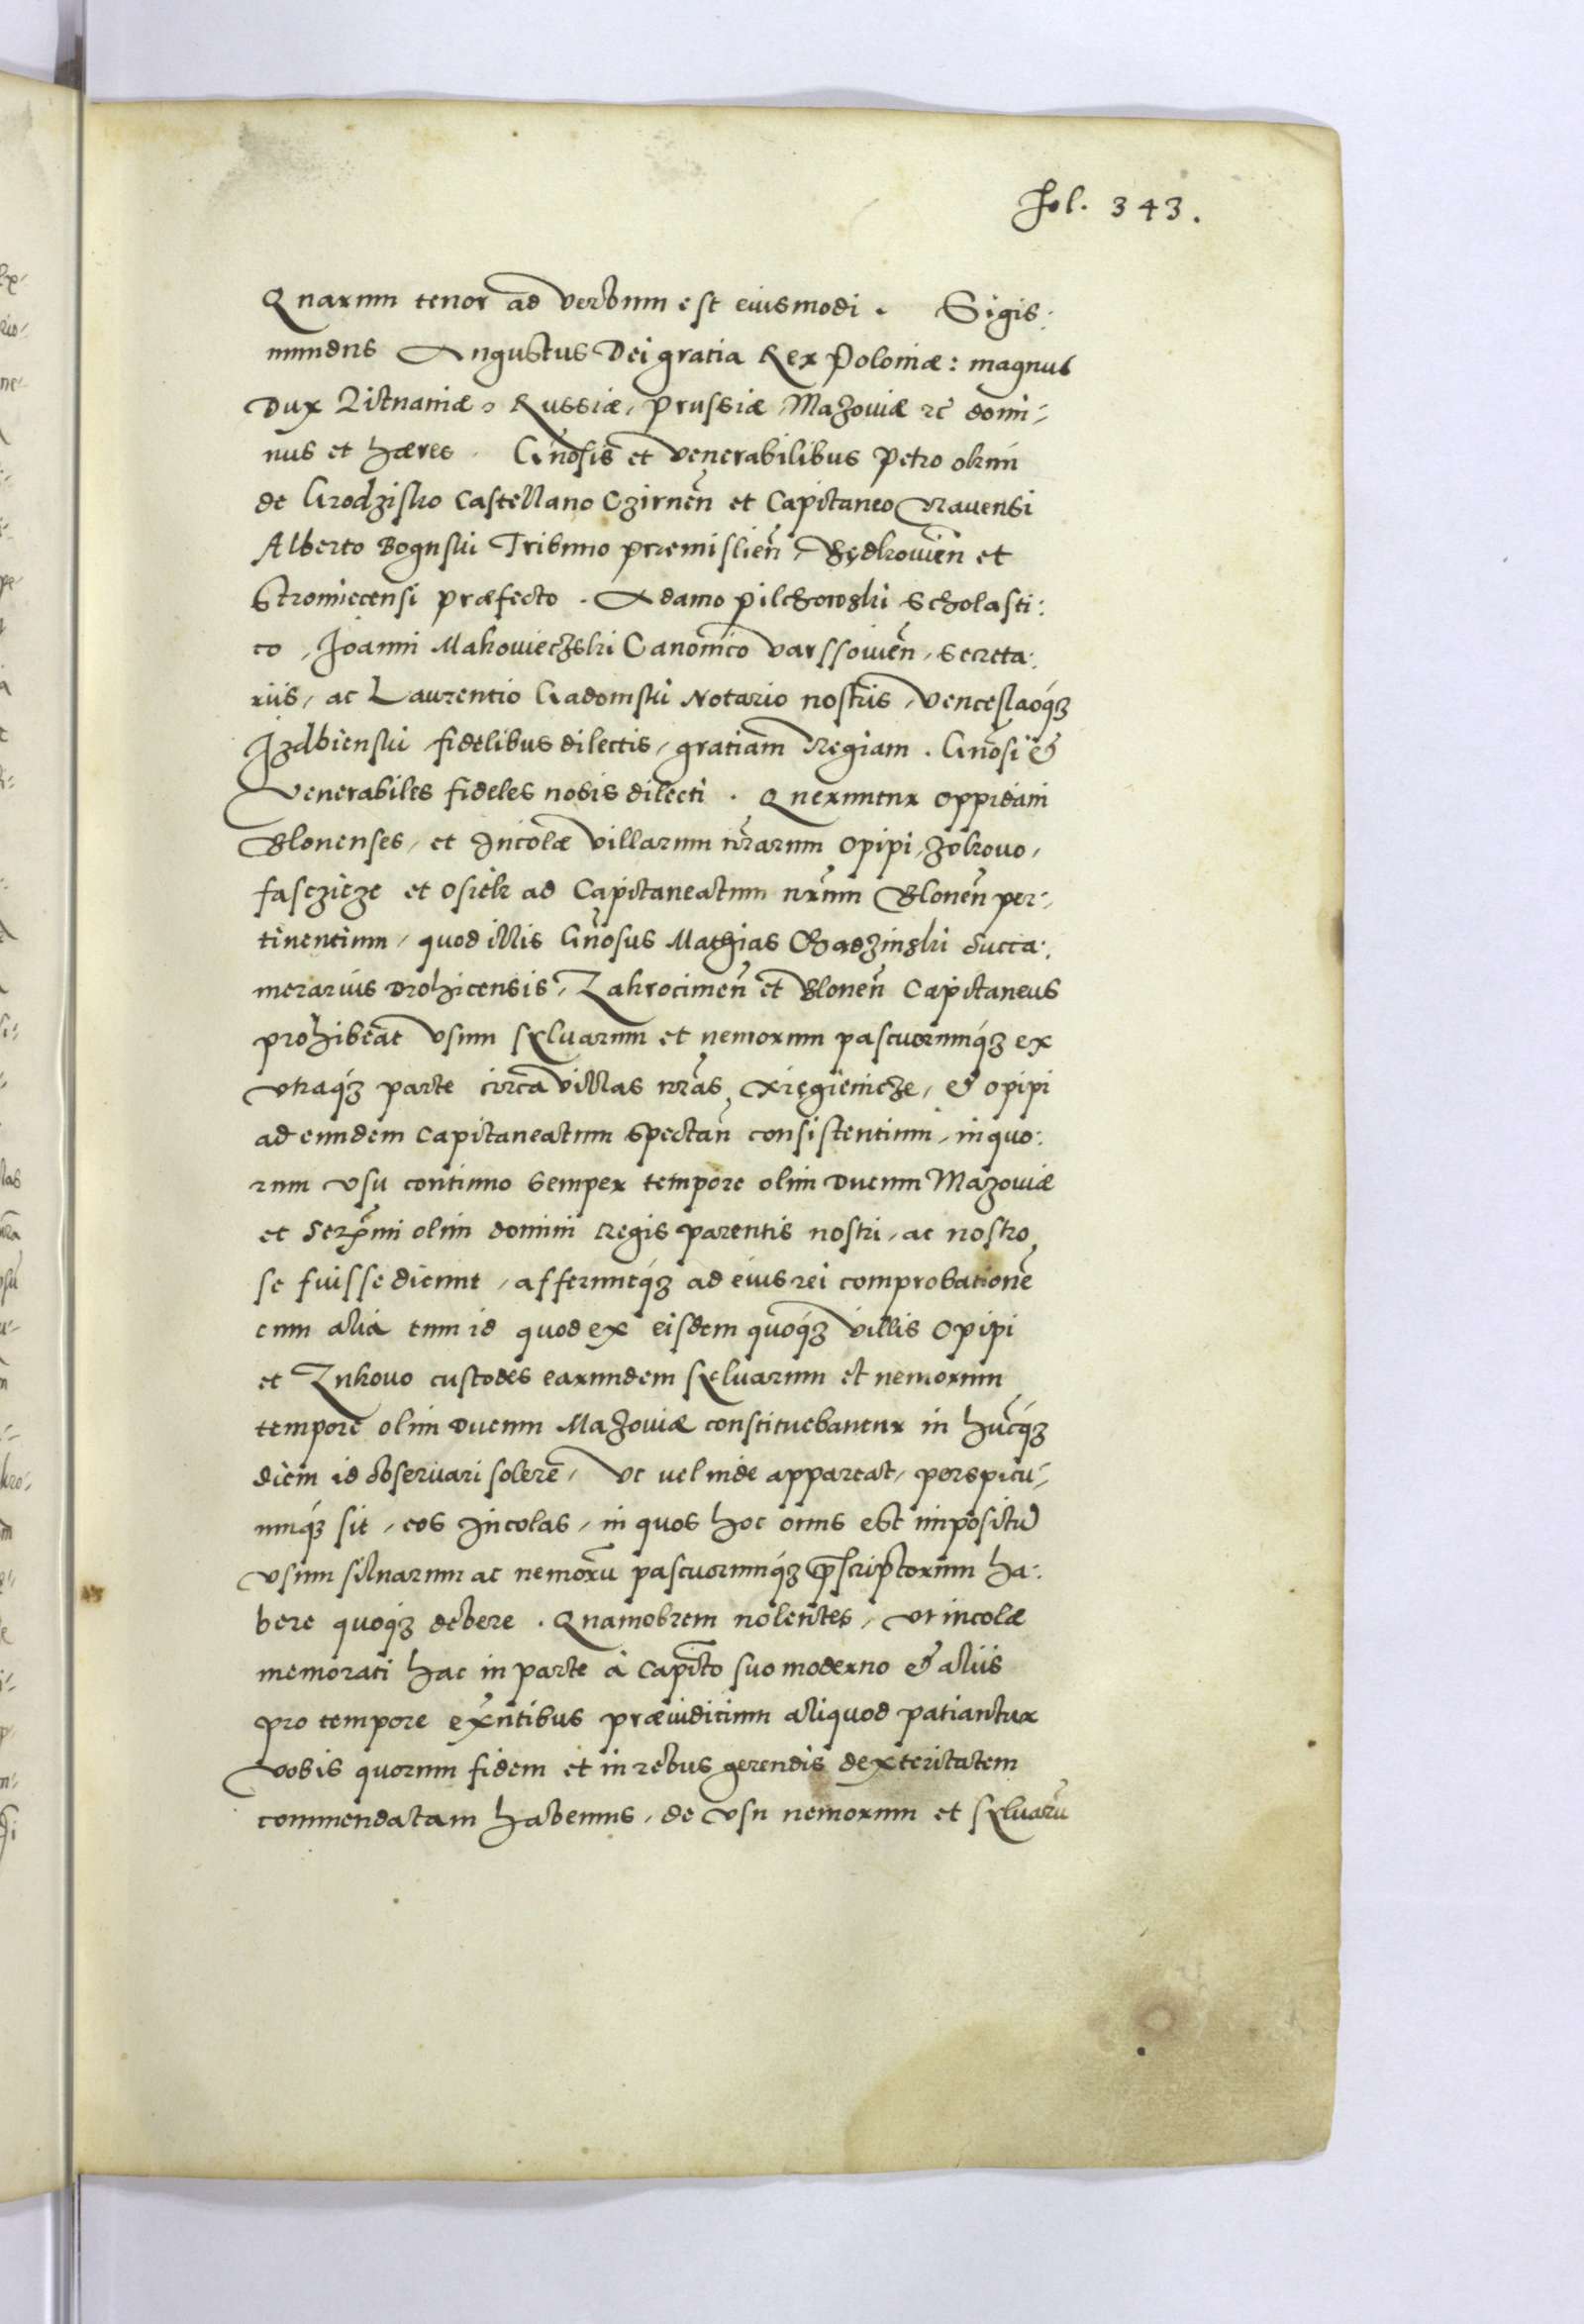 Fol. 343.
Quarum tenor ad verbum est eiusmodi. Sigis:
mundus Augustus Dei gratia Rex Poloniæ: magnus
Dux Lituaniæ, Russiæ, Prussiæ, Mazoviæ zc̃ domi-
nus et hæres. Gñosis et venerabilibus Petro Okuń
de Grodzisko Castellano Czirneñ et Capitaneo Ravensi
Alberto Boguski Tribuno Premislieñ, Będkovieñ et
Stromiecensi præfecto. Adamo Pilchowski Scholasti:
co, Joanni Makowieczski Canonico Varssovieñ, Secreta:
riis, ac Laurentio Gadomski Notario nostris, Venceslaoq́ꝫ
Izdbienski fidelibus dilectis, gratiam Regiam. Gñosi &
venerabiles fideles nobis dilecti. Queruntur oppidani
Blonenses, et Incolæ villarum nr̃arum Opipi, Zolkovo,
Fasczieze et Osiek ad Capitaneatum nr̃um Bloneñ per-
tinentium, quod illis Gñosus Mathias Gbadzinski Succa:
merarius Drohicensis, Zakrocimeñ et Bloneñ Capitaneus
prohibeat usum sylvarum et nemorum pascuorumq́ꝫ ex
utraq́ꝫ parte circa villas nr̃as, Xięgienicze, & Opipi
ad eundem Capitaneatum spectañ consistentium, in quo:
rum usu continuo semper tempore olim Ducum Mazoviæ
et Serx̃mi olim domini Regis parentis nostri, ac nostro
se fuisse dicunt, afferuntq́ꝫ ad eius rei comprobationē
cum alia tum id quod ex eisdem quoq́ꝫ villis Opipi
et Zukovo custodes earundem sylvarum et nemorum
tempore olim Ducum Mazoviæ constituebantur in hũcq́ꝫ
diem id observari solere, ut vel inde appareat, perspicu-
umq́ꝫ sit, eos Incolas, in quos hoc onus est impositũ
usum silvarum ac nemorũ pascuorumq́ꝫ p̃scriptorum ha:
bere quoq́ꝫ debere. Quamobrem nolentes, ut incolæ
memorati hac in parte à Capito suo moderno & aliis
pro tempore ex̃ntibus præiudicium aliquod patiantur
vobis quorum fidem et in rebus gerendis dexteritatem
commendatam habemus, de usu nemorum et sylvarũ